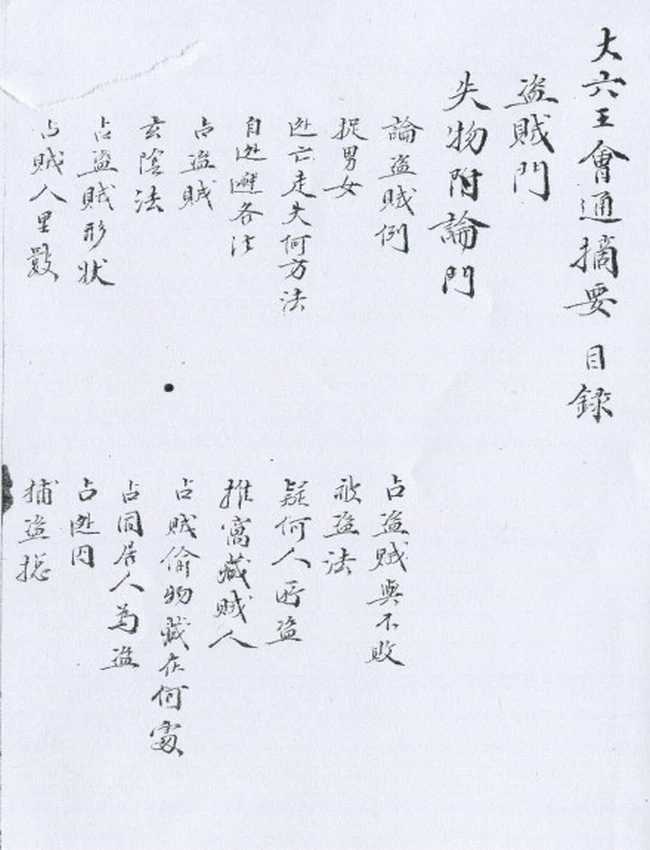 大六壬會通摘要 目錄
盜賊門
失物附論門
論盜賊例
占盜賊與不敗
捉男女
被盜法
迯亡走失何方法
疑何人所盜
自迯避各法
推窩藏賊人
占盜賊
占賊偷物藏在何處
玄陰法
占同居人為盜
占盜賊形狀
占迯囚
占賊人里數
捕盜